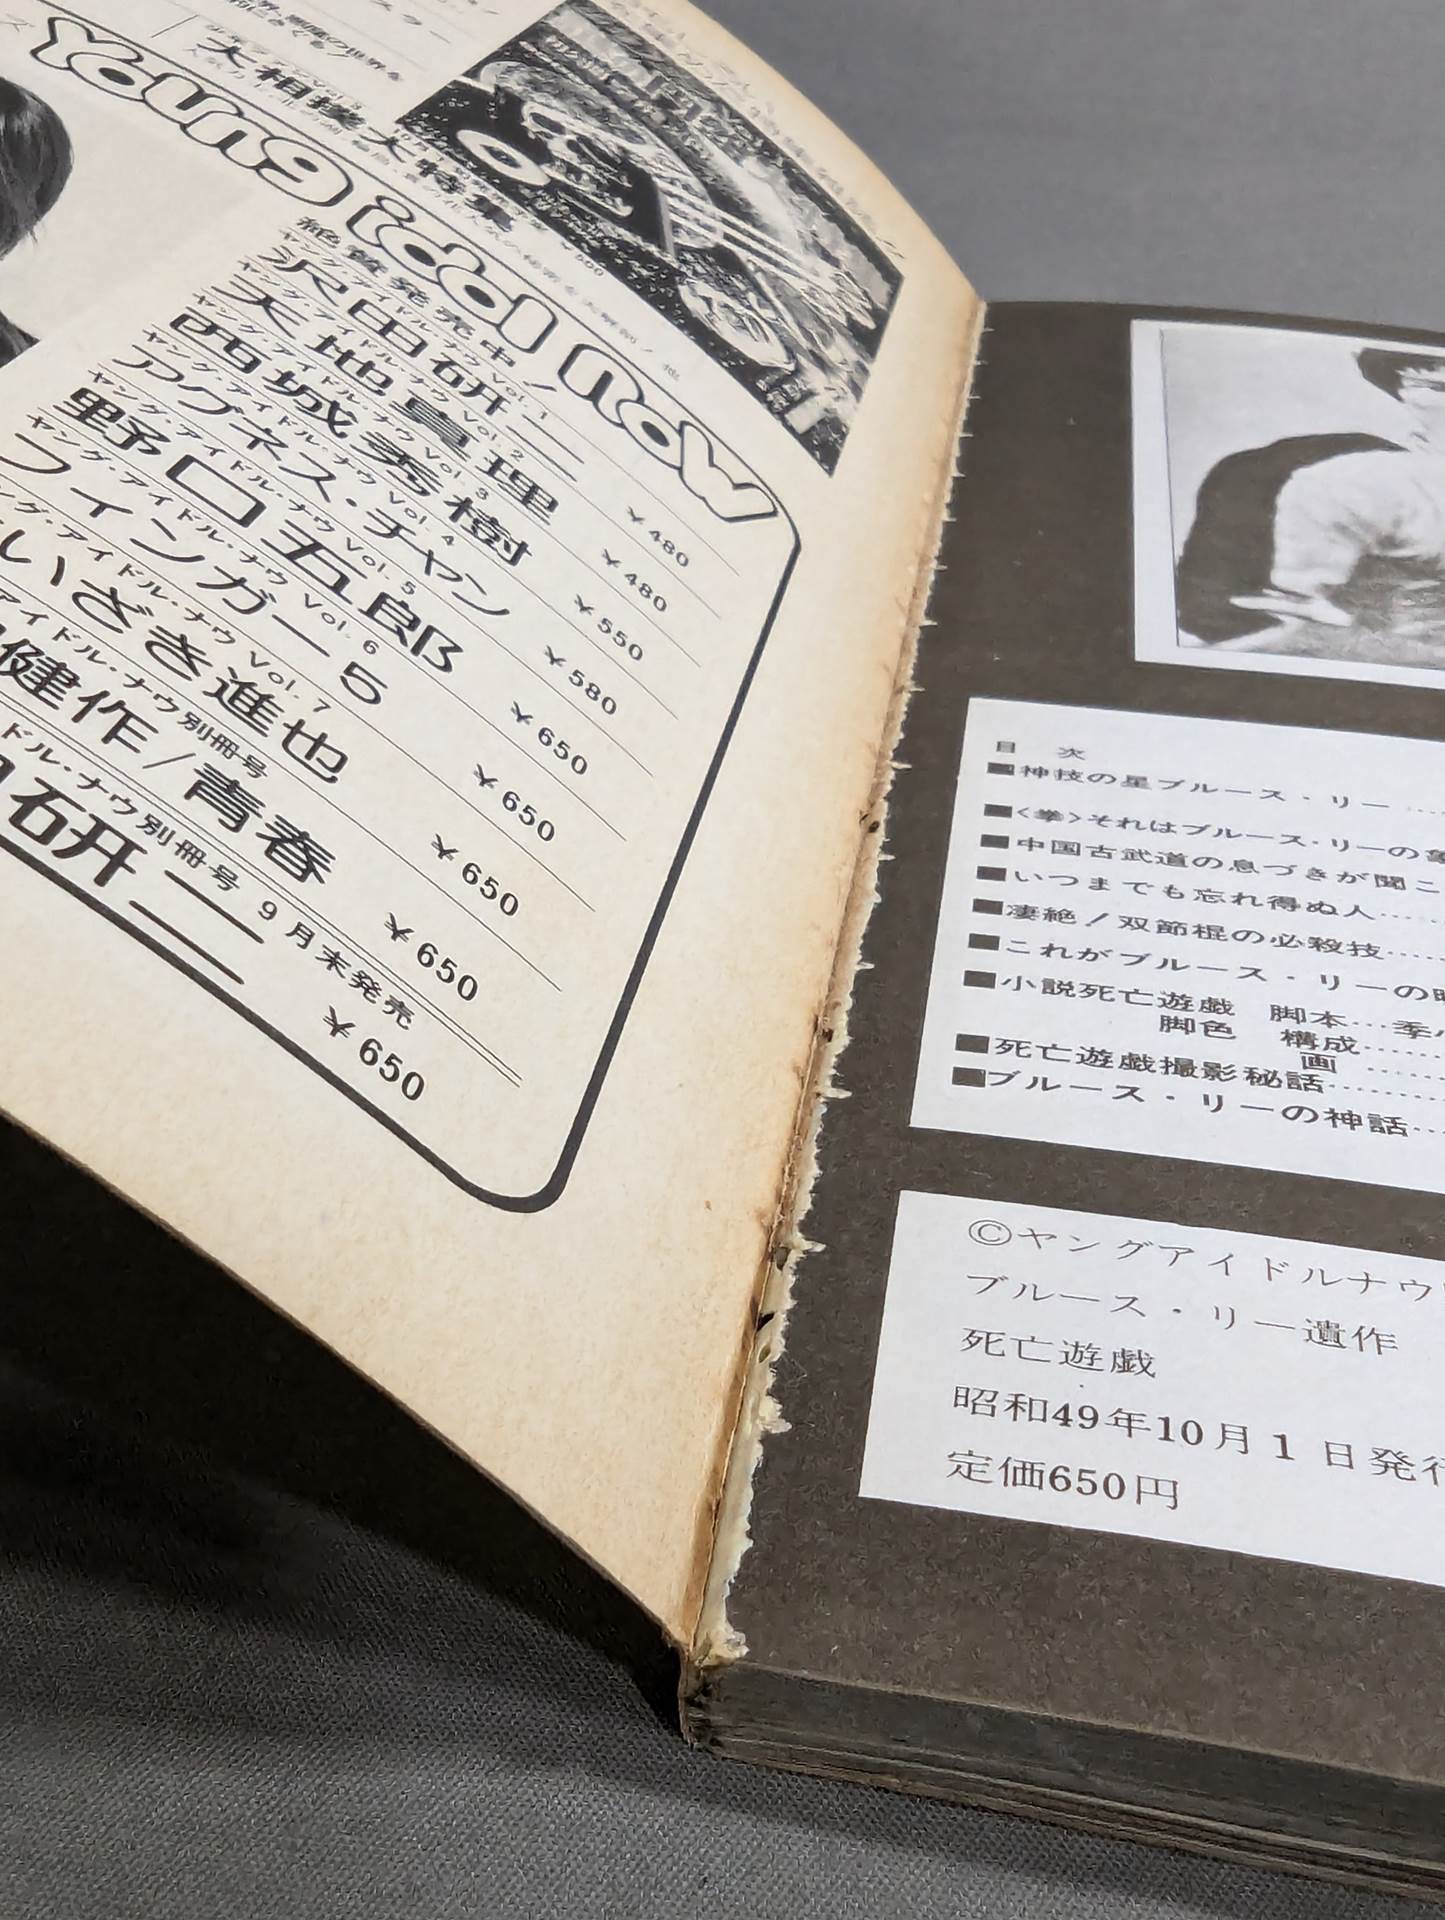 大相撲大特集
600
Young idol now
絶賛発売中！
ヤング・アイドル・ナウ Vol.1
沢田研二 ¥480
ヤング・アイドル・ナウ Vol.2
天地真理 ¥480
ヤング・アイドル・ナウ Vol.3
西城秀樹 ¥550
ヤング・アイドル・ナウ Vol.4
アグネス・チャン ¥580
ヤング・アイドル・ナウ Vol.5
野口五郎 ¥650
ヤング・アイドル・ナウ Vol.6
フィンガー5 ¥650
ング・アイドル・ナウ Vol.7
いざき進也 ¥650
アイドル・ナウ別冊号
健作/青春 ¥650
ドル・ナウ別冊号 9月末発売
研二 ¥650
目 次
■神技の星ブルース・リー……
■<拳>それはブルース・リーの
■中国古武道の息づきが聞こ
■いつまでも忘れ得ぬ人……
■凄絶！双節棍の必殺技……
■これがブルース・リーの
■小説死亡遊戯 脚本…季小
脚色 構成……
画……
■死亡遊戯撮影秘話……
■ブルース・リーの神話……
©ヤングアイドルナウ
ブルース・リー遺作
死亡遊戯
昭和49年10月1日発行
定価650円